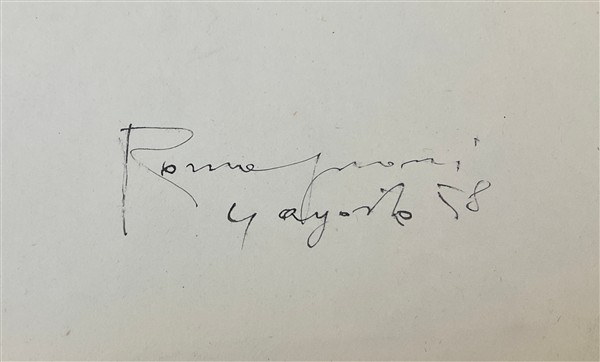 Romagnoni
4 agosto 58